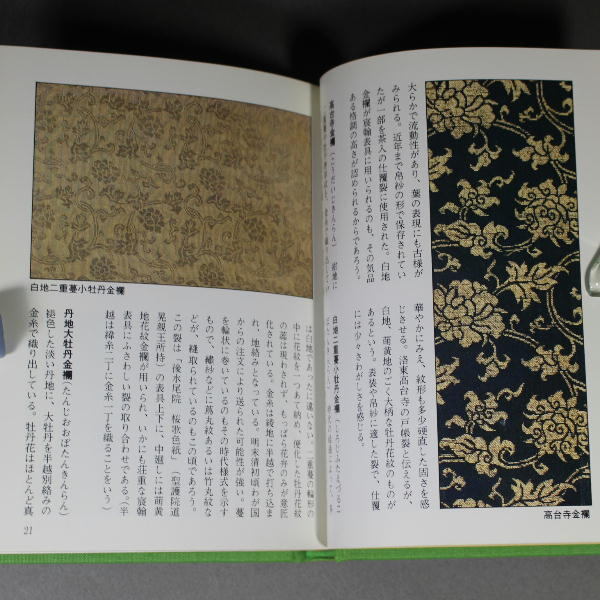 大らかで流動性があり、葉の表現にも古様が
みられる。近年まで帛紗の形で保存されてい
たが一部を茶入の仕覆裂に使用された。白地
金襴が宸翰表具に用いられるのも、その気品
ある格調の高さが認められるからであろう。
高台寺金襴(こうだいじきんらん) 紺地に
華やかにみえ、紋形も多少硬直した固さを感
じさせる。洛東高台寺の戸帳裂と伝えるが、
白地、萌黄地のごく大柄な牡丹花紋のものが
あるという。表装や帛紗に適した裂で、仕覆
には少々さわがしさを感じる。
白地二重蔓小牡丹金襴
高台寺金襴
白地二重蔓小牡丹金襴
は白地であったに違いない。二重蔓の輪形の
中に花紋を一つあて納め、便化した牡丹花紋
の蕊は現わされず、もっぱら花弁のみが意匠
化されている。金糸は綾地に半越で打ち込ま
れ、地絡みとなっている。明末清初頃わが国
からの注文により送られた可能性が強い。蔓
を輪状に巻いているのもその時代様式を示す
もので、繡紗などに蔦丸紋あるいは竹丸紋な
どが、縫取られているのもこの頃であろう。
この裂は、後水尾院 桜歌色紙、(聖護院道
晃親王所持)の表具上下に、中廻しには萌黄
地花紋金襴が用いられ、いかにも荘重な宸翰
表具にふさわしい裂の取り合わせである。半
越は緯糸二丁に金糸一丁を織ることをいう)
丹地大牡丹金襴(たんじおおぼたんきんらん)
褪色した淡い丹地に、大牡丹を半越別絡みの
金糸で織り出している。牡丹花はほとんど真
21